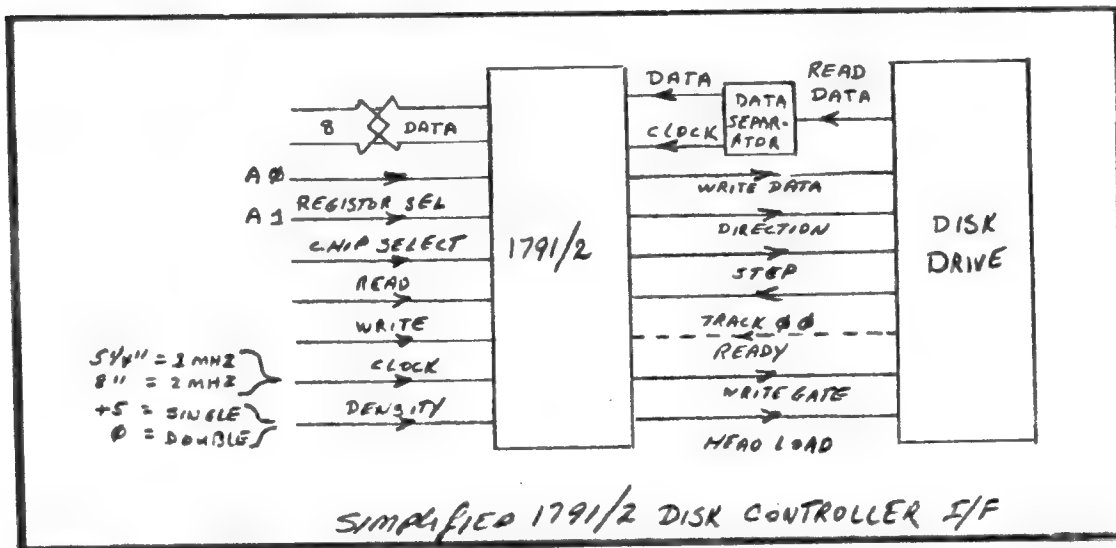 8 DATA
A0
A1 REGISTOR SEL
CHIP SELECT
READ
WRITE
5 1/4" = 1 MHZ
8" = 2 MHZ
CLOCK
+5 = SINGLE
0 = DOUBLE
DENSITY
1791/2
DATA
CLOCK
DATA
SEPAR-
ATOR
READ
DATA
WRITE DATA
DIRECTION
STEP
TRACK 00
READY
WRITE GATE
HEAD LOAD
DISK
DRIVE
SIMPLIFIED 1791/2 DISK CONTROLLER I/F